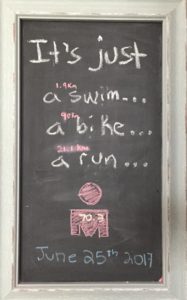 It's just
1.9km
a swim...
90km
a bike...
21.1 km
a run...
70.3
June 25th 2017